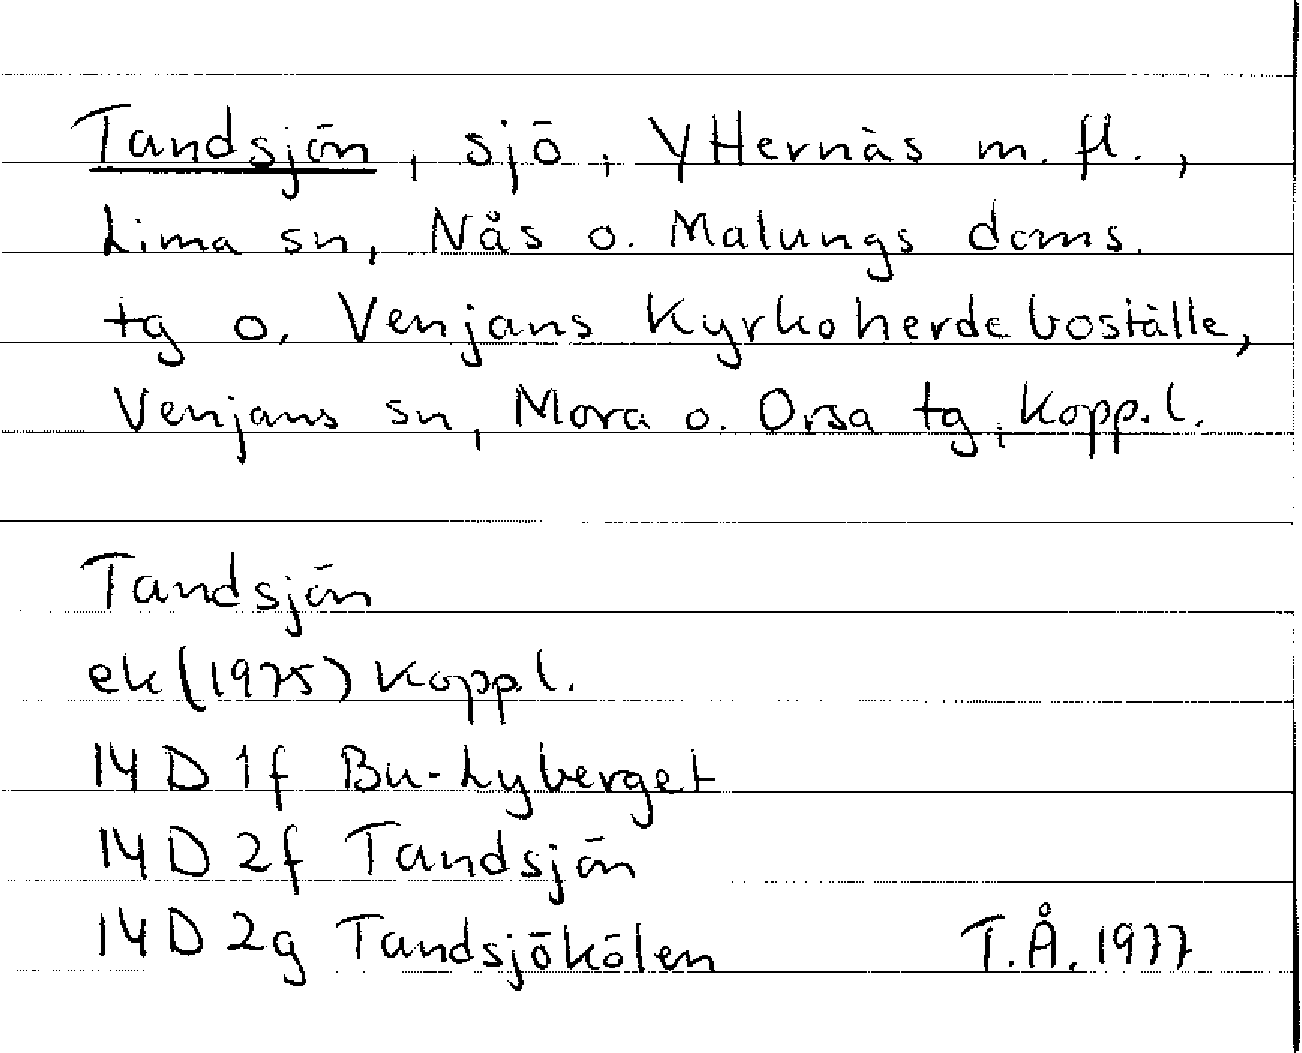 Tandsjön, sjö, Ytternäs m. fl.,
Lima sn, Nås o. Malungs doms.
tg o. Venjans Kyrkoherdeboställe,
Venjans sn, Mora o. Orsa tg, Kopp.l.
Tandsjön
ek (1975) Kopp.l.
14 D 1f Bu-Lyberget
14 D 2f Tandsjön
14 D 2g Tandsjökölen T.Å. 1977